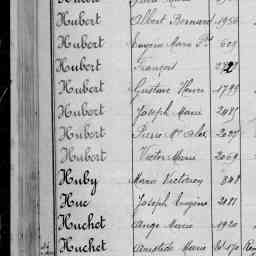 Hubert
Hubert Albert Bernard 1950
Hubert Eugène Marie
Hubert François
Hubert Gustave Henri 1799
Hubert Joseph Marie 2485
Hubert Pierre
Hubert Victor Marie 2069
Huby Marie Victorien 848
Huc Joseph Eugène 2181
Huchet Ange Marie 1920
Huchet Aristide Marie